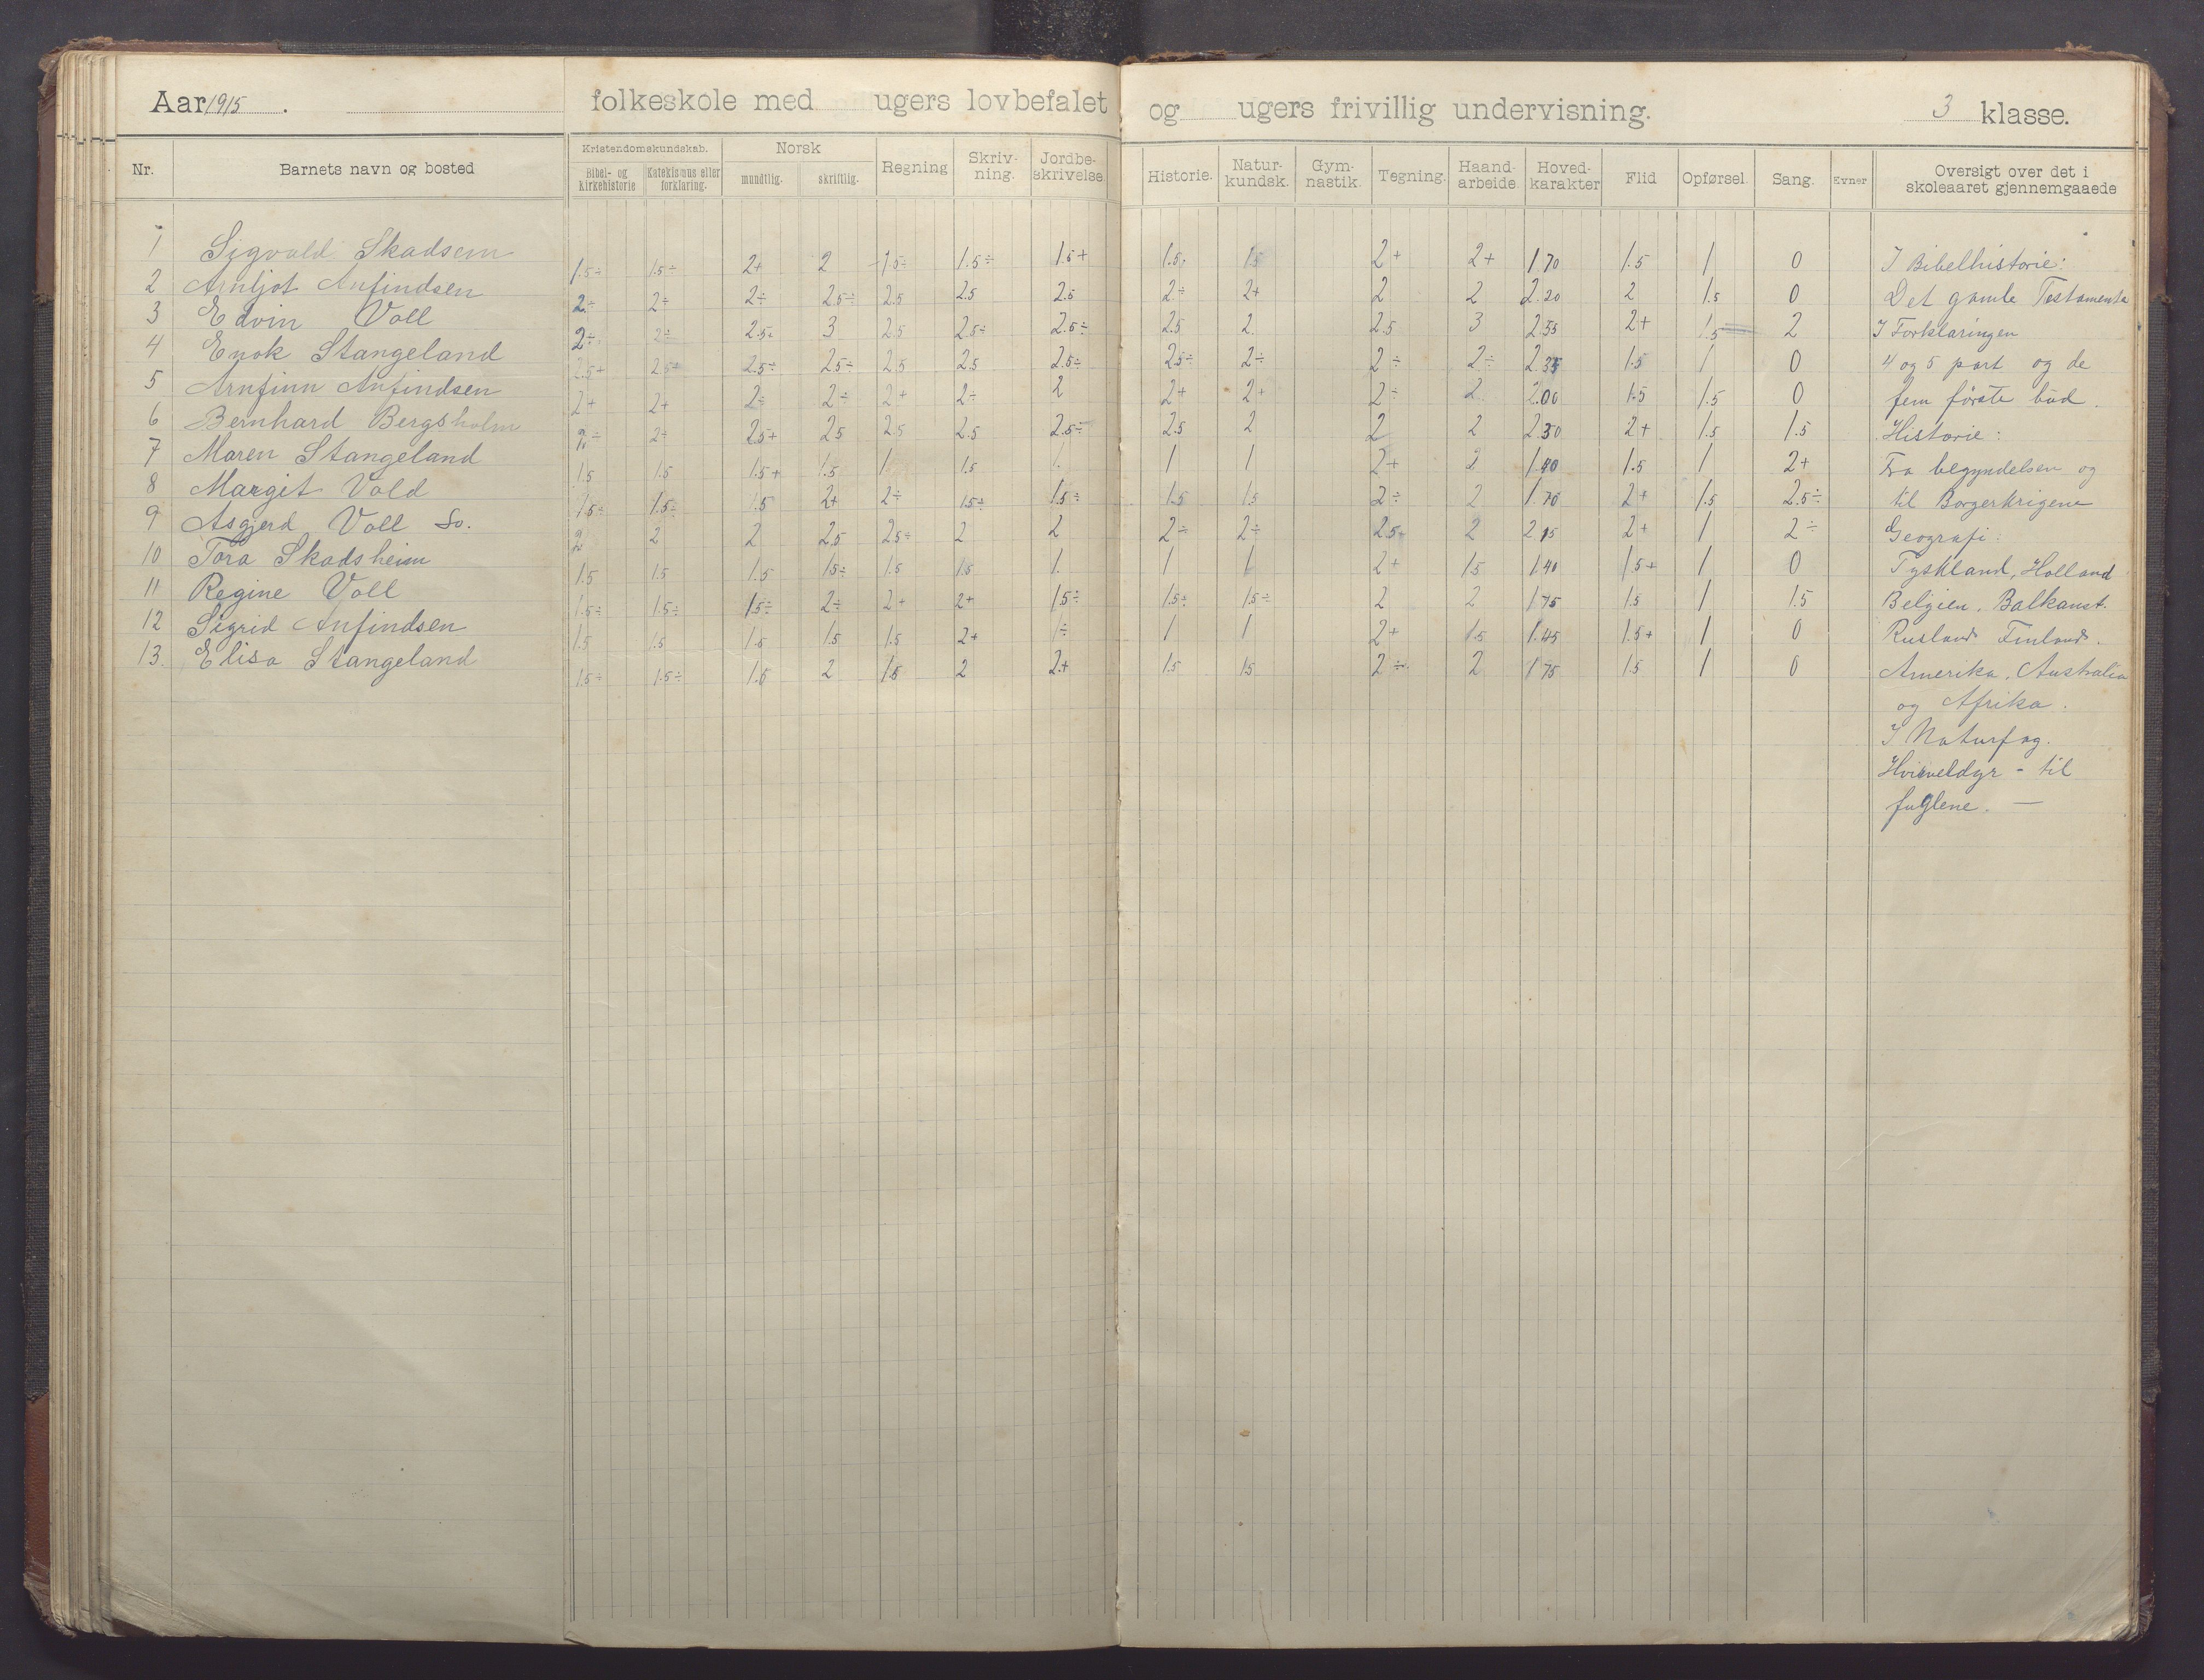 Aar 1915. folkeskole med ugers lovbefalet og ugers frivillig undervisning. 3 klasse.
Nr. Barnets navn og bosted Kristendomskundskab. Bibel- og Kirkehistorie Katekismus eller forklaring. Norsk mundtlig. skriftlig. Regning Skrivning. Jordbeskrivelse Historie. Naturkundsk. Gymnastik. Tegning. Haandarbeide Hovedkarakter Flid Opførsel. Sang. Evner Oversigt over det i skoleaaret gjennemgaaede
1 Sigvald Skadsem 1.5÷ 1.5÷ 2+ 2 1.5÷ 1.5÷ 1.5+ 1.5 1.5 2+ 2+ 1.70 1.5 1 0 I Bibelhistorie:
2 Arnljot Anfindsen 2÷ 2÷ 2÷ 2.5÷ 2.5 2.5 2.5 2÷ 2+ 2 2 2.20 2 1.5 0 Det gamle Testamente
3 Edvin Voll 2÷ 2÷ 2.5÷ 3 2.5 2.5÷ 2.5÷ 2.5 2 2.5 3 2.55 2+ 1.5 2 I Forklaringen
4 Enok Stangeland 2.5+ 2.5+ 2.5÷ 2.5÷ 2.5 2.5 2.5÷ 2.5÷ 2÷ 2÷ 2÷ 2.35 1.5 1 0 4 og 5 part og de
5 Arnfinn Anfindsen 2+ 2+ 2÷ 2÷ 2+ 2÷ 2 2+ 2+ 2÷ 2 2.00 1.5 1.5 0 fem første bud.
6 Bernhard Bergsholm 2÷ 2÷ 2.5+ 2.5 2.5 2.5 2.5÷ 2.5 2 2 2 2.30 2+ 1.5 1.5 Historie:
7 Maren Stangeland 1.5 1.5 1.5+ 1.5 1 1.5 1. 1 1 2+ 2 1.40 1.5 1 2+ Fra begyndelsen og
8 Margit Vold 1.5÷ 1.5÷ 1.5 2+ 2÷ 1.5÷ 1.5÷ 1.5 1.5 2÷ 2 1.70 2+ 1.5 2.5÷ til Borgerkrigene
9 Asgjerd Voll So. 2 2 2 2.5 2.5÷ 2 2 2÷ 2÷ 2.5+ 2 2.15 2+ 1 2÷ Geografi:
10 Tora Skadsheim 1.5 1.5 1.5 1.5÷ 1.5 1.5 1. 1 1 2+ 1.5 1.40 1.5+ 1 0 Tyskland, Holland
11 Regine Voll 1.5÷ 1.5÷ 1.5÷ 2÷ 2+ 2+ 1.5÷ 1.5÷ 1.5÷ 2 2 1.75 1.5 1 1.5 Belgien, Balkanst.
12 Sigrid Anfindsen 1.5 1.5 1.5 1.5 1.5 2+ 1÷ 1 1 2+ 1.5 1.45 1.5+ 1 0 Rusland Finland.
13. Elisa Stangeland 1.5÷ 1.5÷ 1.5 2 1.5 2 2+ 1.5 1.5 2÷ 2 1.75 1.5 1 0 Amerika, Australia
og Afrika.
I Naturfag.
Hvirveldyr - til
fuglene. —